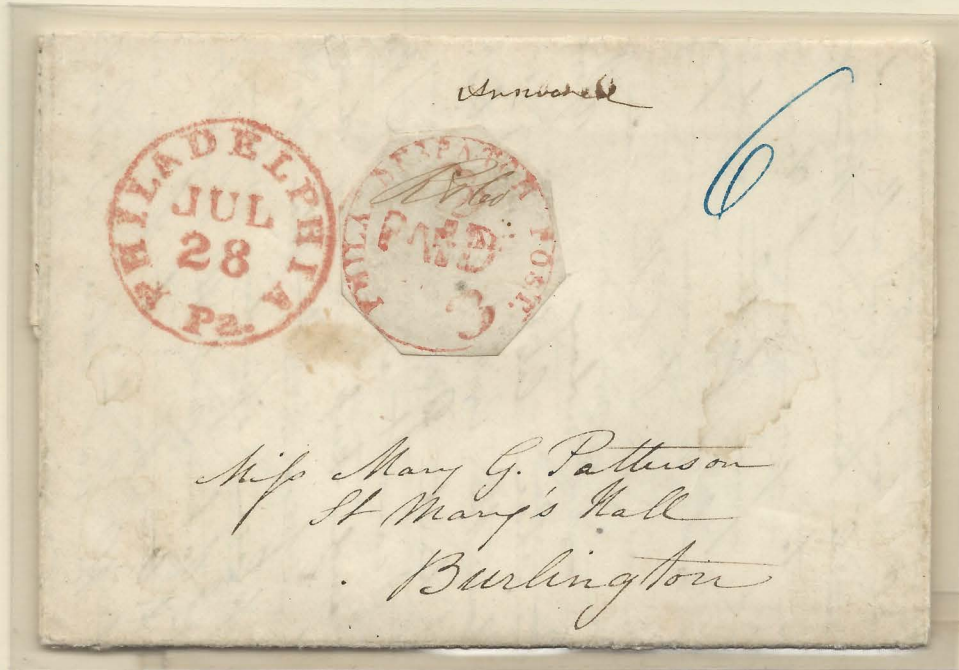 Answered
6
PHILADELPHIA
JUL
28
Pa.
PHILA DESPATCH POST.
PAID
3
Miss Mary G. Patterson
St Mary's Hall
Burlington